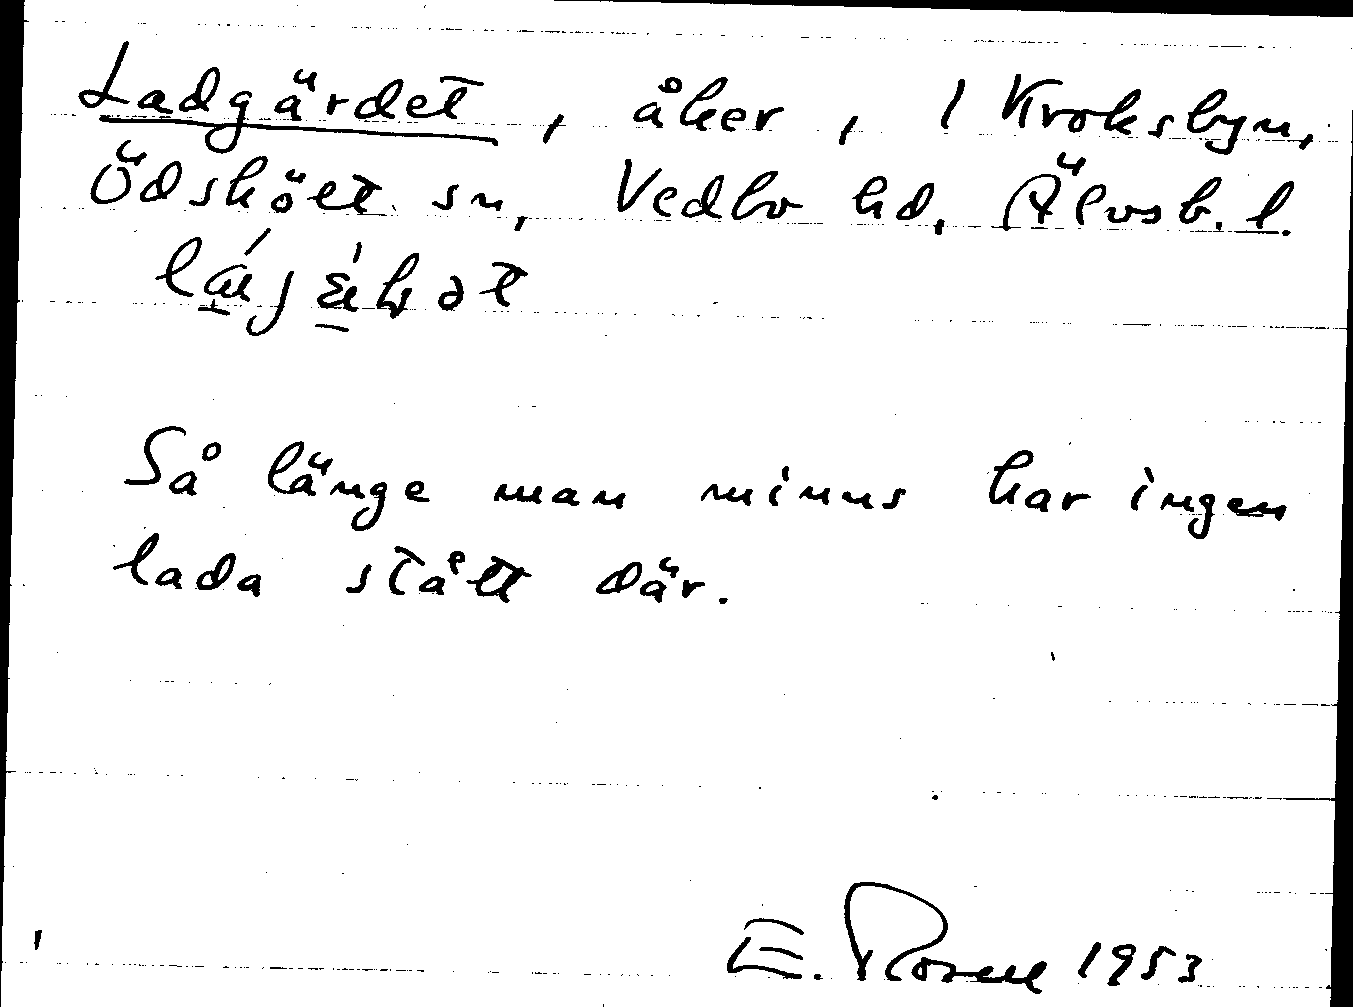 Ladgärdet, åker, 1 Kroksbyn,
Ödskölt sn, Vedbo hd, Älvsb. l.
Så länge man minns har ingen
lada stått där.
E. Rosell 1953